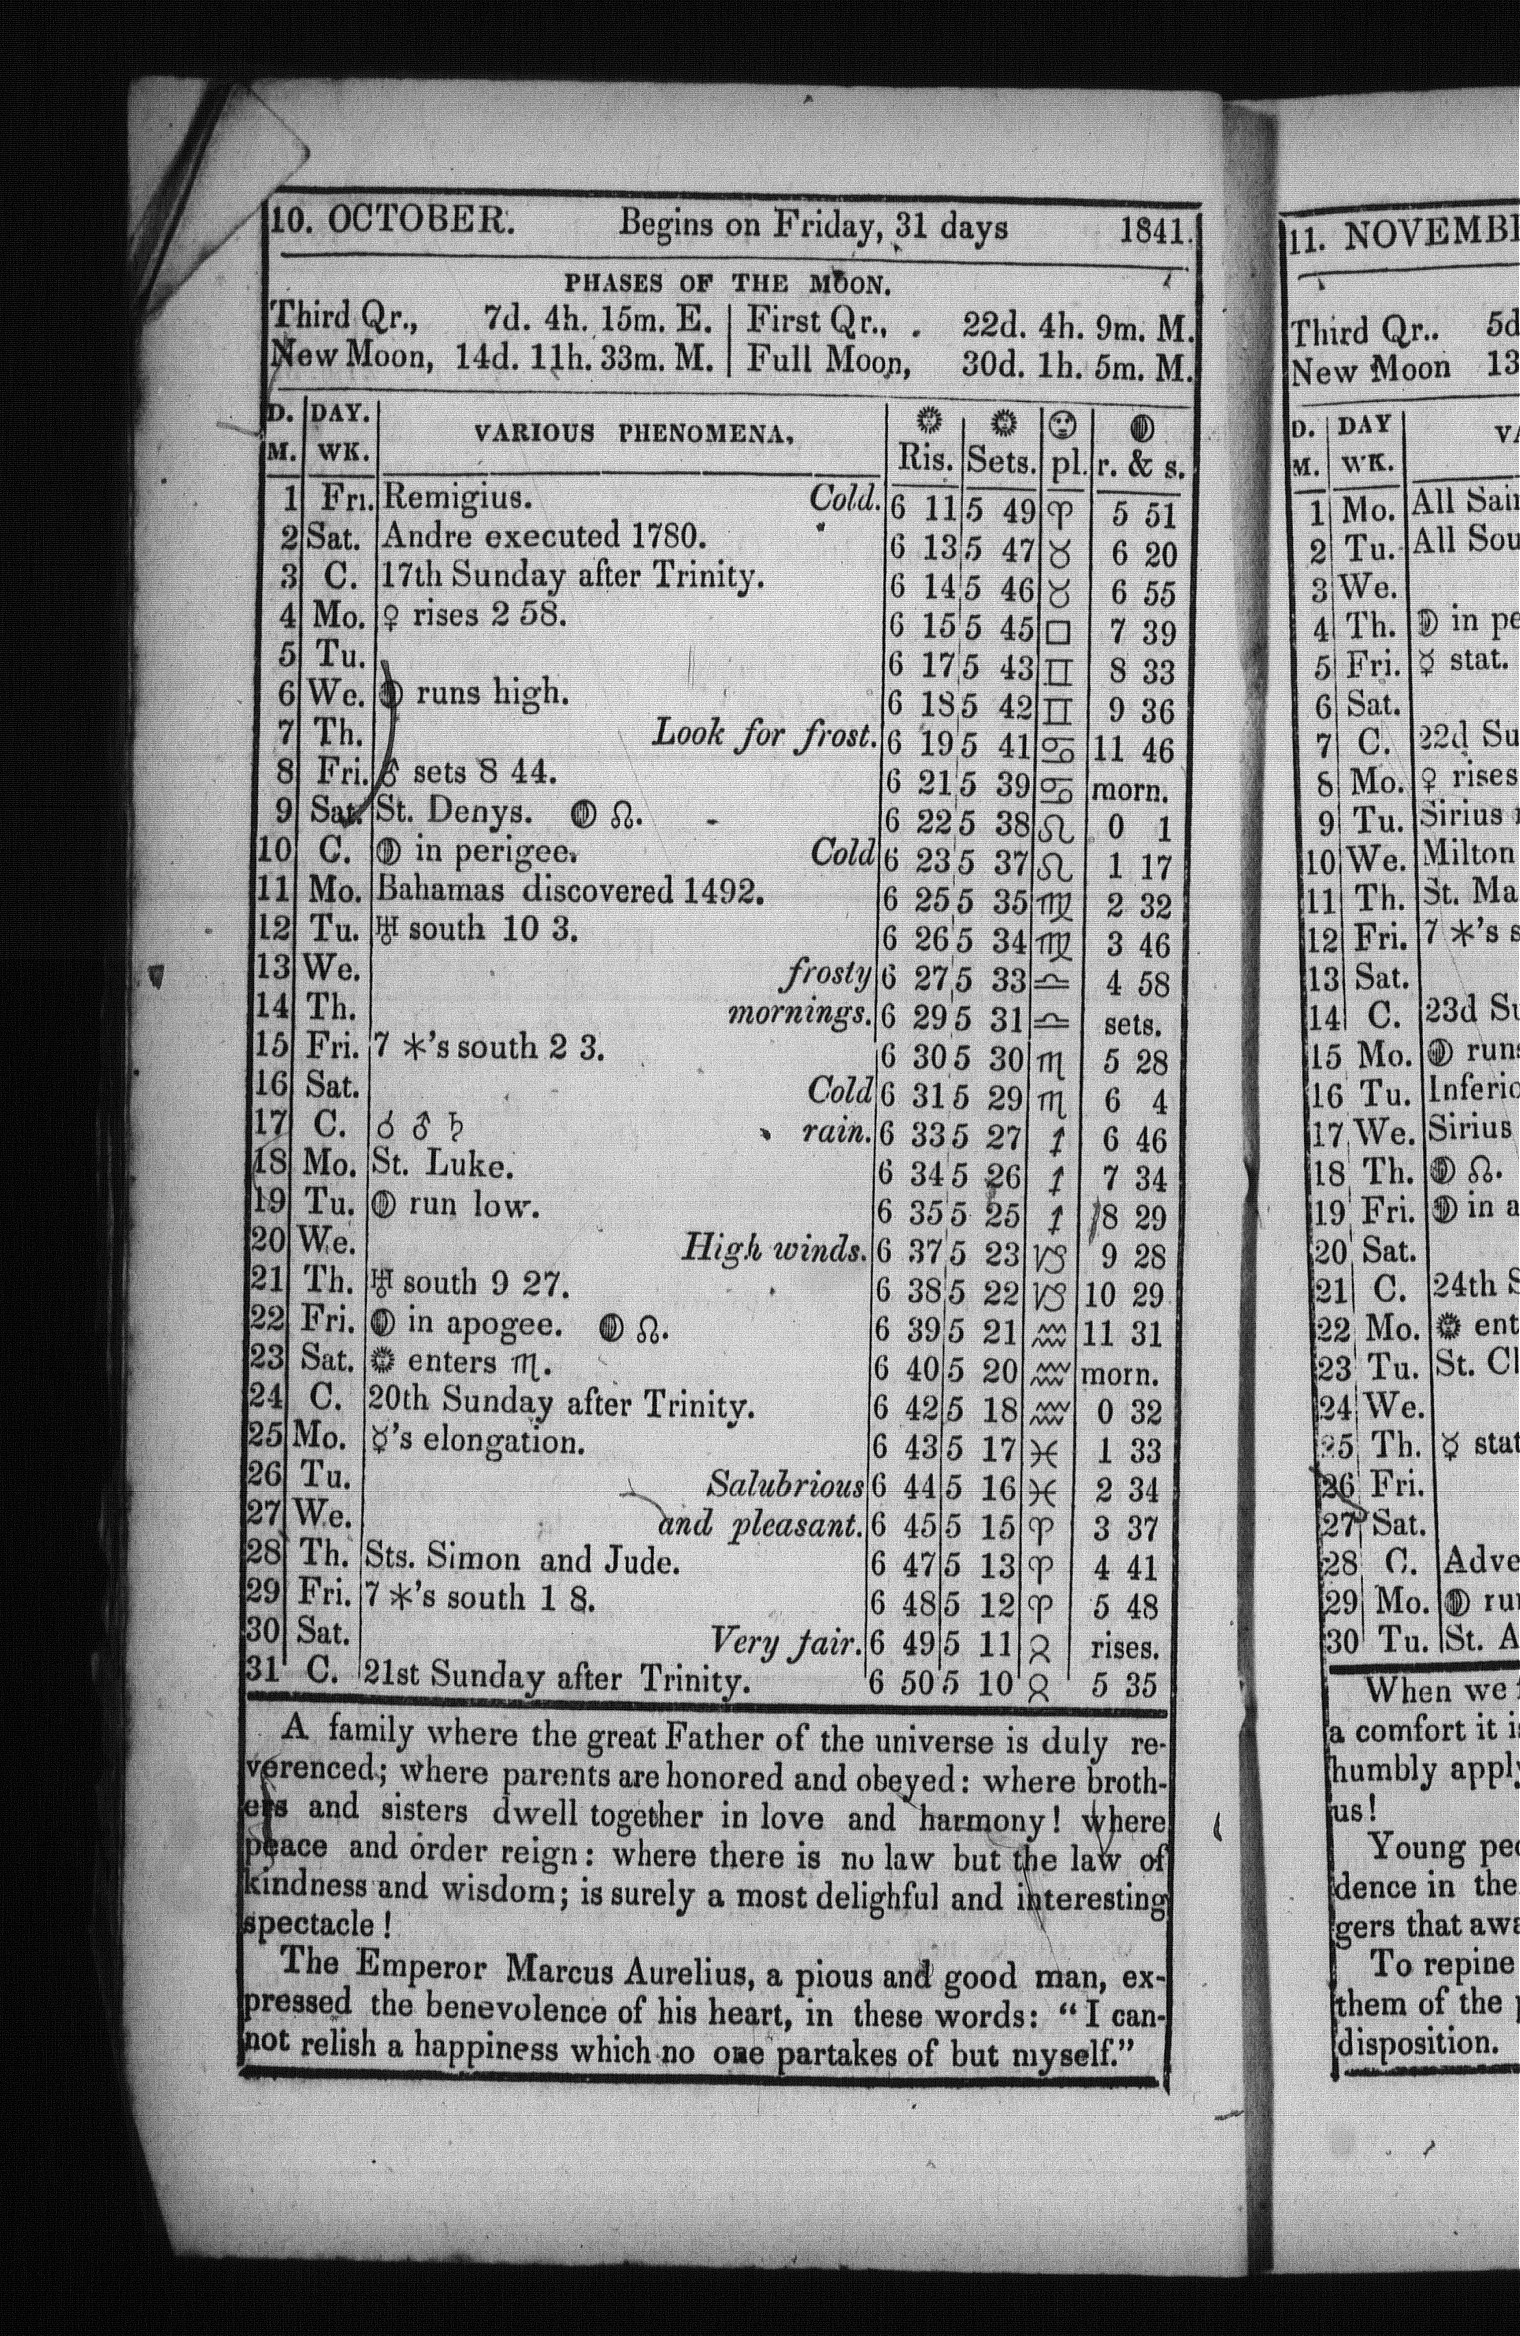 10. OCTOBER. Begins on Friday, 31 days 1841.
PHASES OF THE MOON.
Third Qr., 7d. 4h. 15m. E. | First Qr., . 22d. 4h. 9m. M.
New Moon, 14d. 11h. 33m. M. | Full Moon, 30d. 1h. 5m. M.
D. DAY. VARIOUS PHENOMENA, ☉ ☉ ☽
M. WK. Ris. Sets. pl. r. & s.
1 Fri. Remigius. Cold. 6 11 5 49 ♈ 5 51
2 Sat. Andre executed 1780. 6 13 5 47 ♉ 6 20
3 C. 17th Sunday after Trinity. 6 14 5 46 ♉ 6 55
4 Mo. ♀ rises 2 58. 6 15 5 45 □ 7 39
5 Tu. 6 17 5 43 ♊ 8 33
6 We. ☽ runs high. 6 18 5 42 ♊ 9 36
7 Th. Look for frost. 6 19 5 41 ♋ 11 46
8 Fri. ♂ sets 8 44. 6 21 5 39 ♋ morn.
9 Sat. St. Denys. ☽ ☊. 6 22 5 38 ♌ 0 1
10 C. ☽ in perigee. Cold 6 23 5 37 ♌ 1 17
11 Mo. Bahamas discovered 1492. 6 25 5 35 ♍ 2 32
12 Tu. ♅ south 10 3. 6 26 5 34 ♍ 3 46
13 We. frosty 6 27 5 33 ♎ 4 58
14 Th. mornings. 6 29 5 31 ♎ sets.
15 Fri. 7 *'s south 2 3. 6 30 5 30 ♏ 5 28
16 Sat. Cold 6 31 5 29 ♏ 6 4
17 C. ☌ ♂ ♄ rain. 6 33 5 27 ♐ 6 46
18 Mo. St. Luke. 6 34 5 26 ♐ 7 34
19 Tu. ☽ run low. 6 35 5 25 ♐ 8 29
20 We. High winds. 6 37 5 23 ♑ 9 28
21 Th. ♅ south 9 27. 6 38 5 22 ♑ 10 29
22 Fri. ☽ in apogee. ☽ ☊. 6 39 5 21 ♒ 11 31
23 Sat. ☉ enters ♏. 6 40 5 20 ♒ morn.
24 C. 20th Sunday after Trinity. 6 42 5 18 ♒ 0 32
25 Mo. ☿'s elongation. 6 43 5 17 ♓ 1 33
26 Tu. Salubrious 6 44 5 16 ♓ 2 34
27 We. and pleasant. 6 45 5 15 ♈ 3 37
28 Th. Sts. Simon and Jude. 6 47 5 13 ♈ 4 41
29 Fri. 7 *'s south 1 8. 6 48 5 12 ♈ 5 48
30 Sat. Very fair. 6 49 5 11 ♉ rises.
31 C. 21st Sunday after Trinity. 6 50 5 10 ♉ 5 35
A family where the great Father of the universe is duly re-
verenced; where parents are honored and obeyed: where broth-
ers and sisters dwell together in love and harmony! where
peace and order reign: where there is no law but the law of
kindness and wisdom; is surely a most delighful and interesting
spectacle!
The Emperor Marcus Aurelius, a pious and good man, ex-
pressed the benevolence of his heart, in these words: "I can-
not relish a happiness which no one partakes of but myself."
11. NOVEMBE
Third Qr.. 5d
New Moon 13
D. DAY
M. WK.
1 Mo. All Sain
2 Tu. All Sou
3 We.
4 Th. ☽ in pe
5 Fri. ☿ stat.
6 Sat.
7 C. 22d Su
8 Mo. ♀ rises
9 Tu. Sirius
10 We. Milton
11 Th. St. Ma
12 Fri. 7 *'s s
13 Sat.
14 C. 23d Su
15 Mo. ☽ runs
16 Tu. Inferio
17 We. Sirius
18 Th. ☽ ☊.
19 Fri. ☽ in a
20 Sat.
21 C. 24th S
22 Mo. ☉ ent
23 Tu. St. Cl
24 We.
25 Th. ☿ stat
26 Fri.
27 Sat.
28 C. Adve
29 Mo. ☽ run
30 Tu. St. A
When we
a comfort it is
humbly apply
us!
Young peo
dence in the
gers that awa
To repine
them of the
disposition.